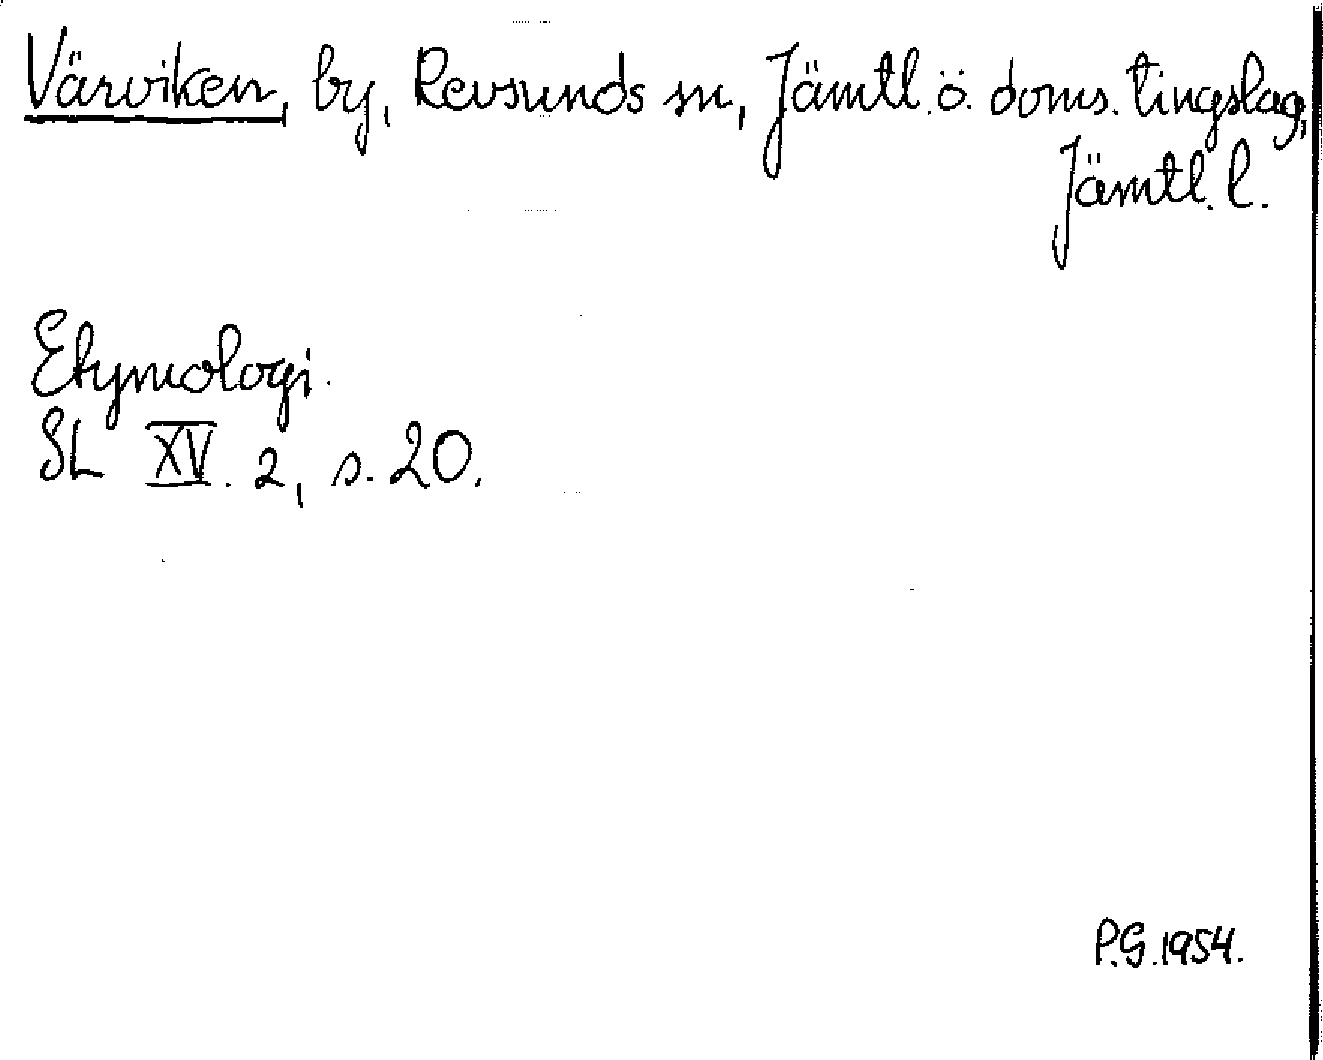 Värviken, by, Revsunds sn, Jämtl. ö. doms. tingslag,
Jämtl. l.
Etymologi.
SL XV. 2, s. 20.
P.G. 1954.